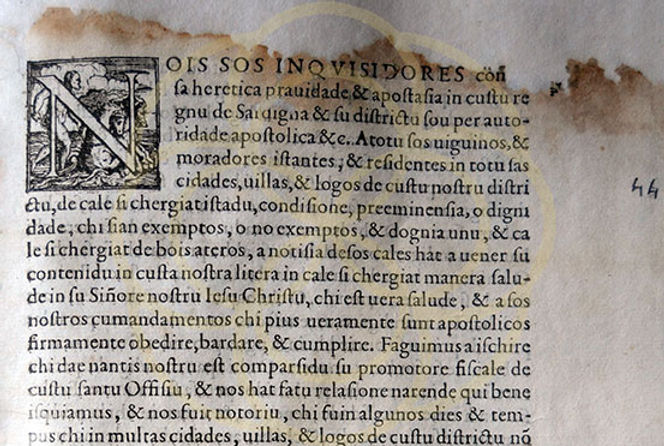 NOIS SOS INQVISIDORES cōn
sa heretica prauidade, & apostasia in custu re
gnu de Sardigna & su districtu sou per auto-
ridade apostolica & c. A totu sos uiguinos, &
moradores istantes, & residentes in totu sas
cidades, uillas, & logos de custu nostru distri
ctu, de cale si chergiat istadu, condisione, preeminensia, o digni
dade, chi sian exemptos, o no exemptos, & dognia unu, & ca
le si chergiat de bois ateros, a notisia desos cales hat a uener su
contenidu in custa nostra litera in cale si chergiat manera salu-
de in su Siñore nostru Iesu Christu, chi est uera salude, & a sos
nostros cumandamentos chi pius ueramente sunt apostolicos
firmamente obedire, bardare, & cumplire. Faguimus a ischire
chi dae nantis nostru est comparsidu su promotore fiscale de
custu santu Offisiu, & nos hat fatu relasione narende qui bene
isquiamus, & nos fuit notoriu, chi fuin algunos dies & tem-
pus chi in multas cidades, uillas, & logos de custu districtu nō
44